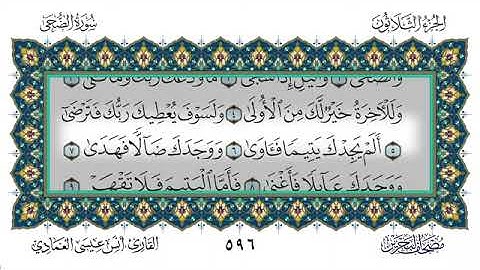 سُورَةُ الضُّحَى
الجُزْءُ الثَّلَاثُونَ
وَالضُّحَى ١ وَالَّيْلِ إِذَا سَجَى ٢ مَا وَدَّعَكَ رَبُّكَ وَمَا قَلَى ٣
وَلَلْآخِرَةُ خَيْرٌ لَّكَ مِنَ الْأُولَى ٤ وَلَسَوْفَ يُعْطِيكَ رَبُّكَ فَتَرْضَى
٥ أَلَمْ يَجِدْكَ يَتِيمًا فَآوَى ٦ وَوَجَدَكَ ضَآلًّا فَهَدَى ٧
وَوَجَدَكَ عَآئِلًا فَأَغْنَى ٨ فَأَمَّا الْيَتِيمَ فَلَا تَقْهَرْ ٩
القارئ أنس عيسى العمادي
٥٩٦